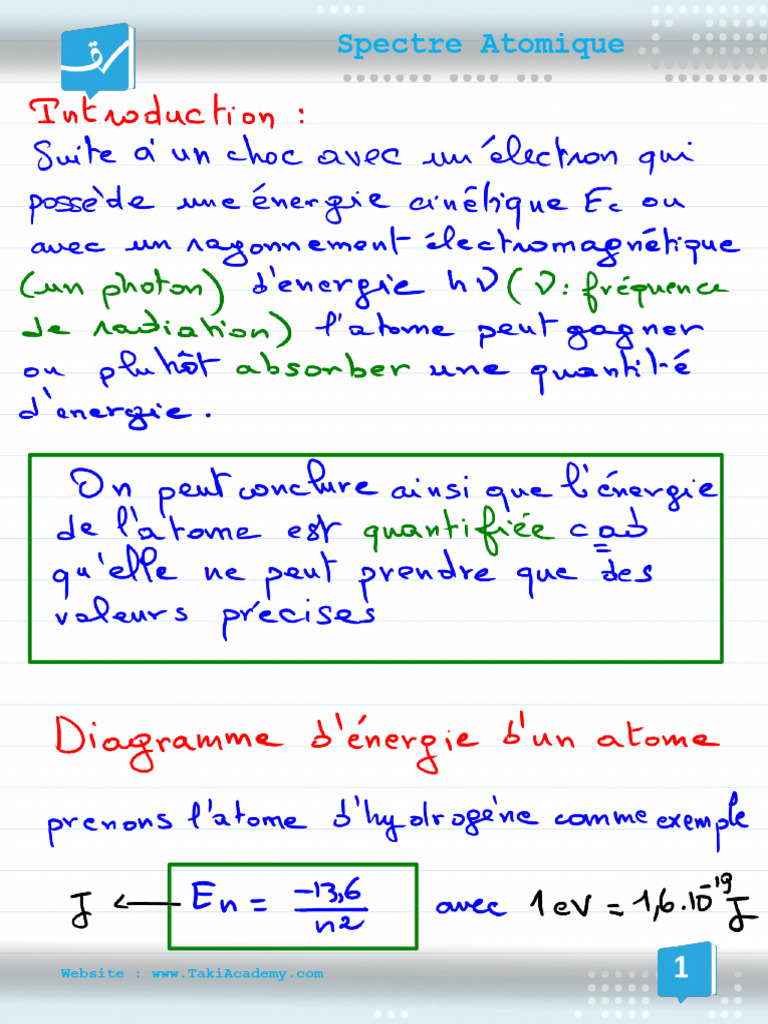 Spectre Atomique
Introduction :
Suite à un choc avec un électron qui
possède une énergie cinétique Ec ou
avec un rayonnement électromagnétique
(un photon) d'énergie hν (ν : fréquence
de radiation) l'atome peut gagner
ou plutôt absorber une quantité
d'énergie.
On peut conclure ainsi que l'énergie
de l'atome est quantifiée cad
qu'elle ne peut prendre que des
valeurs précises
Diagramme d'énergie d'un atome
prenons l'atome d'hydrogène comme exemple
J ← En = -13,6 / n² avec 1eV = 1,6.10⁻¹⁹ J
Website : www.TakiAcademy.com
1